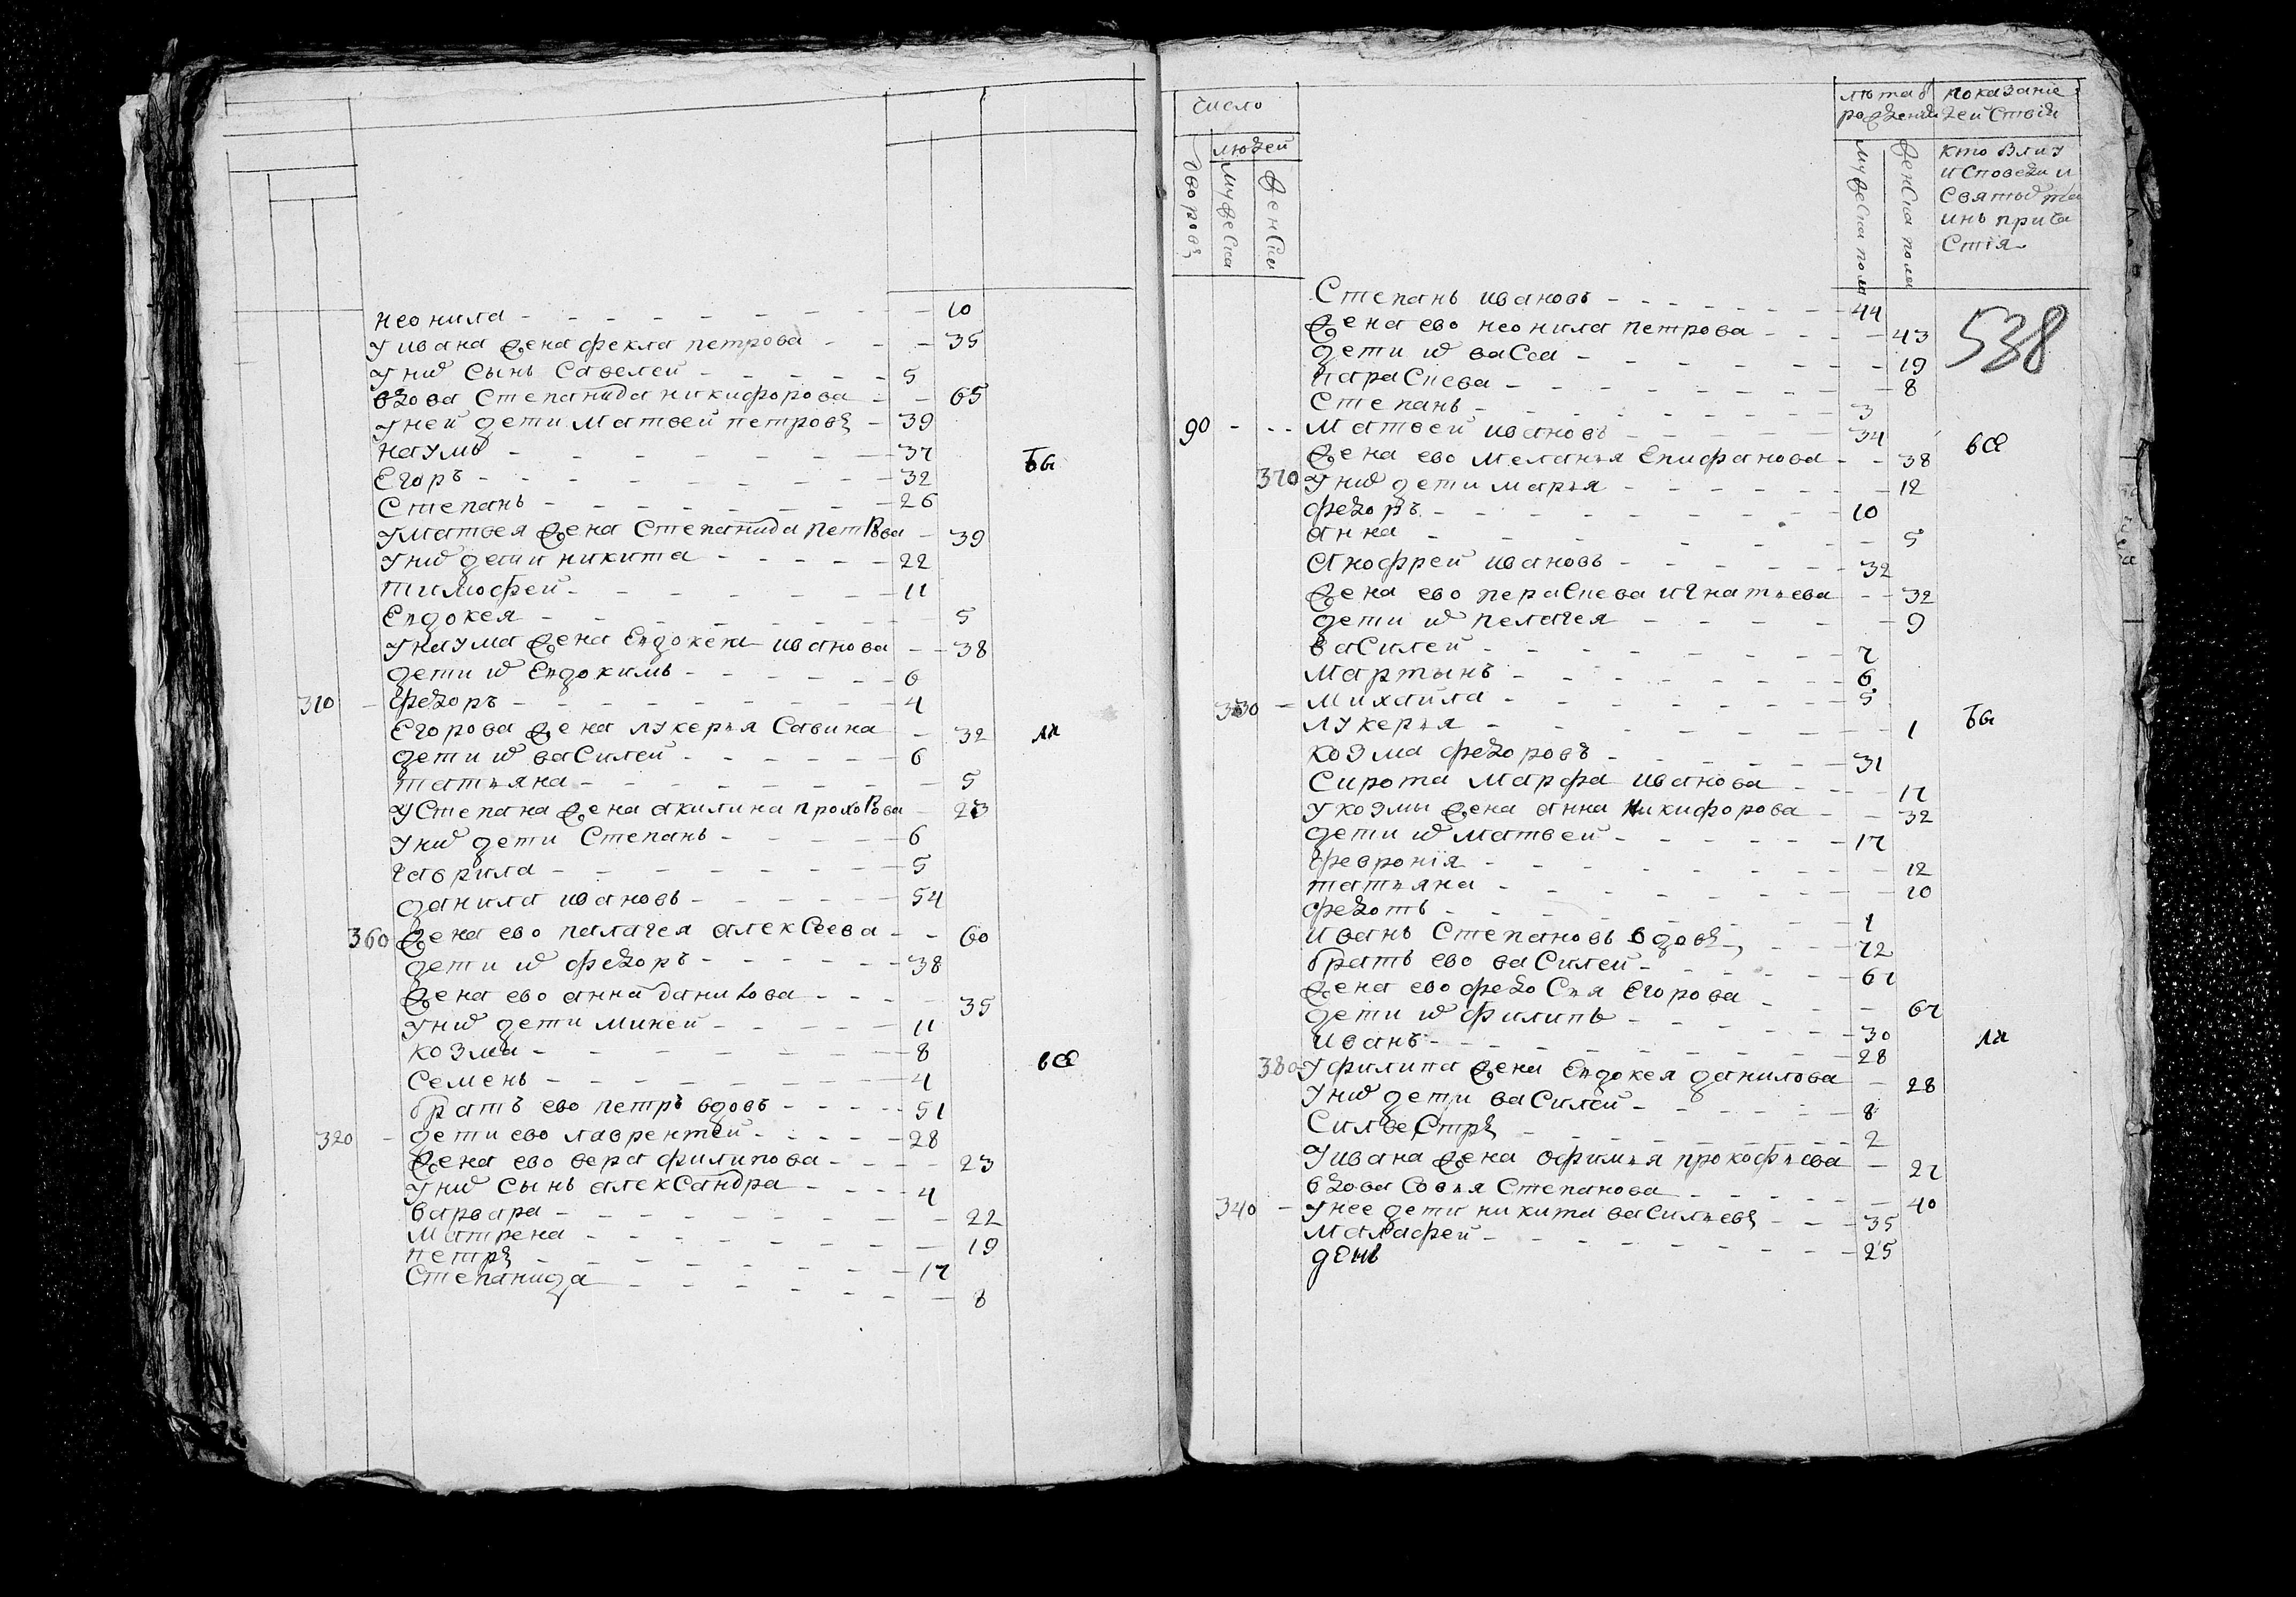 неонила - - - - - - - - 10
У ивана жена фекла петрова - - - 35
У них Сынъ Савелеи - - - - - 5
вдова Степанида никифорова - - 65
У неи дети матвеи петровъ - 39
наумъ - - - - - - - 37
Егоръ - - - - - - - - 32
бы
Степанъ - - - - - - - 26
У матвея жена Степанида петрова - 39
У них дети никита - - - - 22
тимофеи - - - - - - 11
Евдокея - - - - - - - - 5
У наума жена Евдокея иванова - - 38
дети их Евдокимъ - - - - - 6
310 - федоръ - - - - - - - - 4
Егорова жена лукерья Савина - 32
ли
дети их василеи - - - - - - 6
татьяна - - - - - - - - 5
У Степана жена акилина прохорова - 23
У них дети Степанъ - - - - - 6
гаврила - - - - - - - 5
данила ивановъ - - - - - 54
360 жена ево палагея алексеева - - 60
дети их федоръ - - - - - - 38
жена ево анна данилова - - - - 35
У них дети михеи - - - - - 11
козма - - - - - - - - 8
все
Семенъ - - - - - - - - 4
братъ ево петръ вдовъ - - - - 51
320 - дети ево лаврентеи - - - - - 28
жена ево вера филипова - - - - 23
У них Сынъ александра - - - 4
варвара - - - - - - - - 22
матрена - - - - - - - 19
петръ - - - - - - - - 17
Степанида - - - - - - - 8
число
людеи
дворовъ
мужеска
женска
лета от рождения
мужеска пола
женска пола
показание действи
кто были у
исповеди и
святых та
инъ прича
стия
538
Степанъ ивановъ - - - - - - 44
жена ево неонила петрова - - - - 43
дети их васса - - - - - - - 19
параскева - - - - - - - - 8
Степанъ - - - - - - - - 3
90 - - - матвеи ивановъ - - - - - 34
все
жена ево меланья Епифанова - - 38
370 У них дети марья - - - - - - 12
федоръ - - - - - - - - 10
анна - - - - - - - - 5
анофреи ивановъ - - - - - - 32
жена ево пераскева игнатьева - - 32
дети их пелагея - - - - - 9
василеи - - - - - - - - 7
мартынъ - - - - - - - 6
330 - михаила - - - - - - - - 5
лукерья - - - - - - - - 1
бы
козма федоровъ - - - - - - 31
Сирота марфа иванова - - - - 17
У козмы жена анна никифорова - - 32
дети их матвеи - - - - - - 17
февронїя - - - - - - - - 12
татьяна - - - - - - - - 10
федотъ - - - - - - - - 1
иванъ Степановъ вдовъ - - - 72
братъ ево василеи - - - - - 67
жена ево федосья Егорова - - - 67
дети их филипъ - - - - - - 30
иванъ - - - - - - - - 28
ли
380 У филипа жена Евдокея данилова - 28
У них дети василеи - - - - - 8
Силвестръ - - - - - - - 2
У ивана жена офимья прокофьева - 27
вдова Совья Степанова - - - - - 40
340 - У нее дети никита васильевъ - - - 35
малафеи - - - - - - - - 25
день